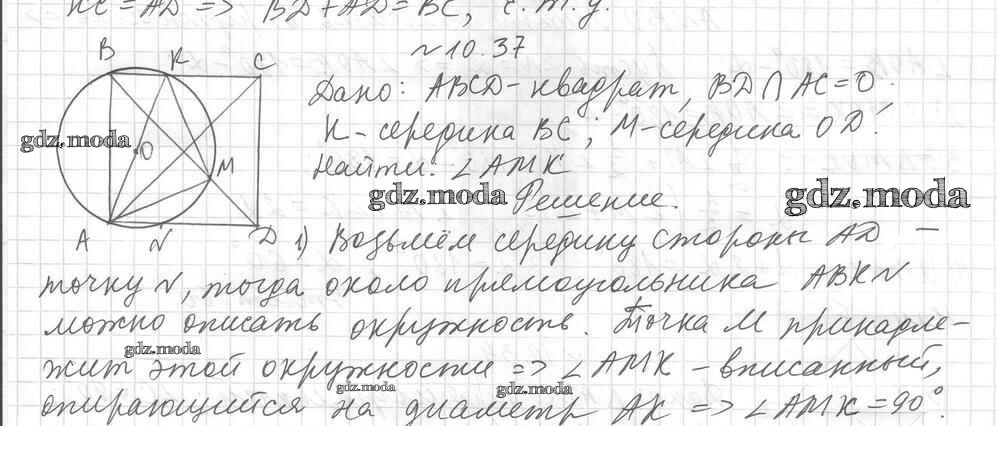 KC = AD => BD + AD = BC, ч. т. д.
№ 10.37
B K C
Дано: ABCD - квадрат, BD ∩ AC = O.
K - середина BC; M - середина OD.
gdz.moda
O
M
Найти: ∠AMK
gdz.moda
Решение.
gdz.moda
A N D
1) Возьмём середину стороны AD –
точку N, тогда около прямоугольника ABKN
можно описать окружность. Точка M принадле-
gdz.moda
жит этой окружности => ∠AMK - вписанный,
gdz.moda
gdz.moda
опирающийся на диаметр AK => ∠AMK = 90°.